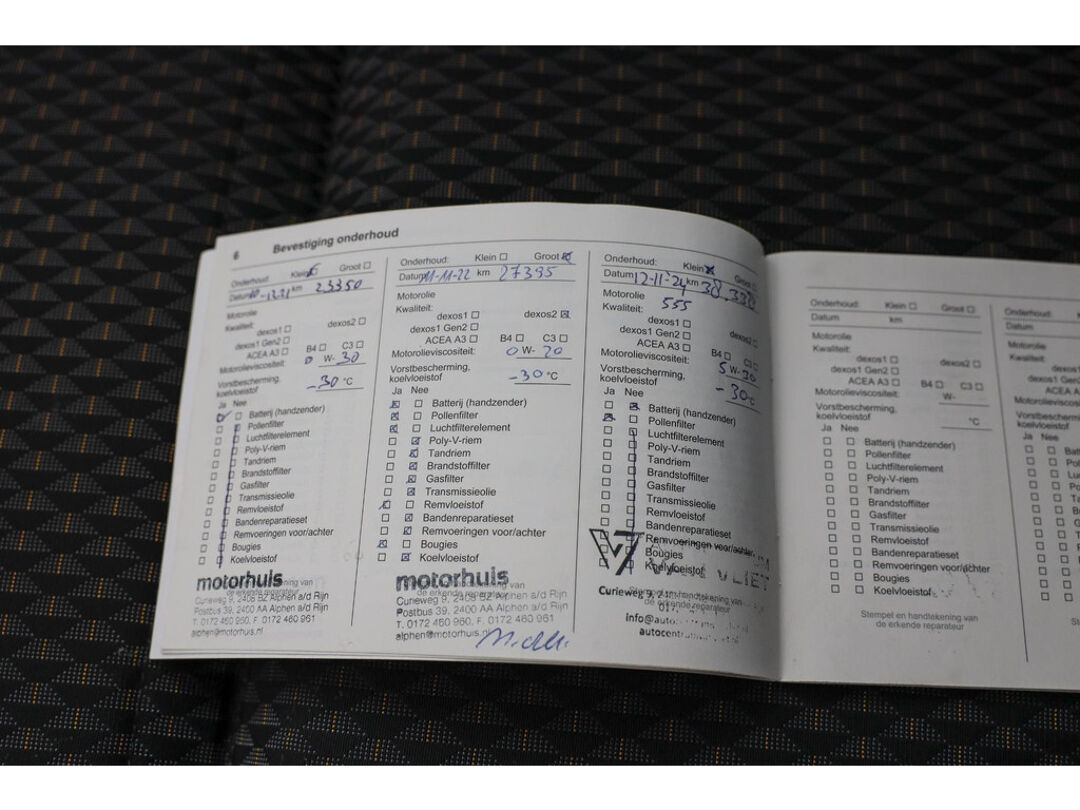 6 Bevestiging onderhoud
Onderhoud: Klein Groot
Datum 10-12-21 km 23350
Motorolie
Kwaliteit:
dexos1 dexos2
dexos1 Gen2
ACEA A3 B4 C3
Motorolieviscositeit: 0 W- 30
Vorstbescherming,
koelvloeistof -30 °C
Ja Nee
Batterij (handzender)
Pollenfilter
Luchtfilterelement
Poly-V-riem
Tandriem
Brandstoffilter
Gasfilter
Transmissieolie
Remvloeistof
Bandenreparatieset
Remvoeringen voor/achter
Bougies
Koelvloeistof
motorhuis
Curieweg 9, 2408 BZ Alphen a/d Rijn
Postbus 39, 2400 AA Alphen a/d Rijn
T. 0172 460 960, F. 0172 460 961
alphen@motorhuis.nl
Onderhoud: Klein Groot
Datum 11-11-22 km 27395
Motorolie
Kwaliteit:
dexos1 dexos2
dexos1 Gen2
ACEA A3 B4 C3
Motorolieviscositeit: 0 W- 20
Vorstbescherming,
koelvloeistof -30 °C
Ja Nee
Batterij (handzender)
Pollenfilter
Luchtfilterelement
Poly-V-riem
Tandriem
Brandstoffilter
Gasfilter
Transmissieolie
Remvloeistof
Bandenreparatieset
Remvoeringen voor/achter
Bougies
Koelvloeistof
motorhuis
de erkende reparateur
Curieweg 9, 2408 BZ Alphen a/d Rijn
Postbus 39, 2400 AA Alphen a/d Rijn
T. 0172 460 960, F. 0172 460 961
alphen@motorhuis.nl
Onderhoud: Klein Groot
Datum 12-11-24 km 38.330
Motorolie
Kwaliteit: 555
dexos1 dexos2
dexos1 Gen2
ACEA A3 B4 C3
Motorolieviscositeit: 5 W-30
Vorstbescherming,
koelvloeistof -30°C
Ja Nee
Batterij (handzender)
Pollenfilter
Luchtfilterelement
Poly-V-riem
Tandriem
Brandstoffilter
Gasfilter
Transmissieolie
Remvloeistof
Bandenreparatieset
Remvoeringen voor/achter
Bougies
Koelvloeistof
VLIET
Curieweg 9,
de erkende reparateur
Onderhoud: Klein Groot
Datum km
Motorolie
Kwaliteit:
dexos1 dexos2
dexos1 Gen2
ACEA A3 B4 C3
Motorolieviscositeit: W-
Vorstbescherming,
koelvloeistof °C
Ja Nee
Batterij (handzender)
Pollenfilter
Luchtfilterelement
Poly-V-riem
Tandriem
Brandstoffilter
Gasfilter
Transmissieolie
Remvloeistof
Bandenreparatieset
Remvoeringen voor/achter
Bougies
Koelvloeistof
Stempel en handtekening van
de erkende reparateur
Onderhoud:
Datum
Motorolie
Kwaliteit:
Motorolieviscositeit
Vorstbescherming,
koelvloeistof
Ja Nee